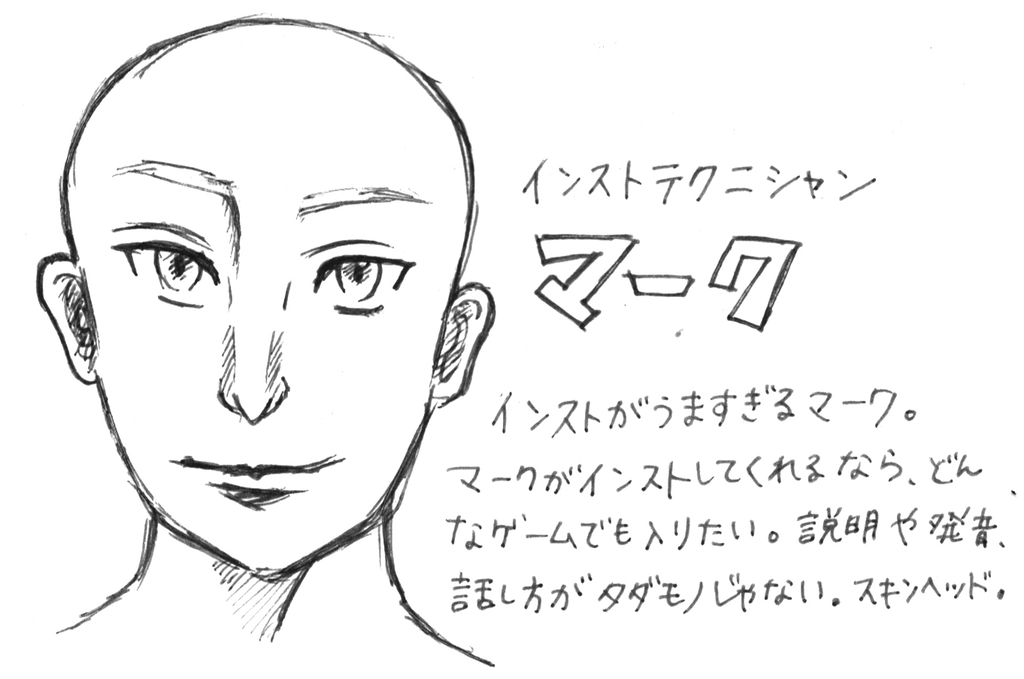 インストテクニシャン
マーク
インストがうますぎるマーク。
マークがインストしてくれるなら、どん
なゲームでも入りたい。説明や発音、
話し方がタダモノじゃない。スキンヘッド。